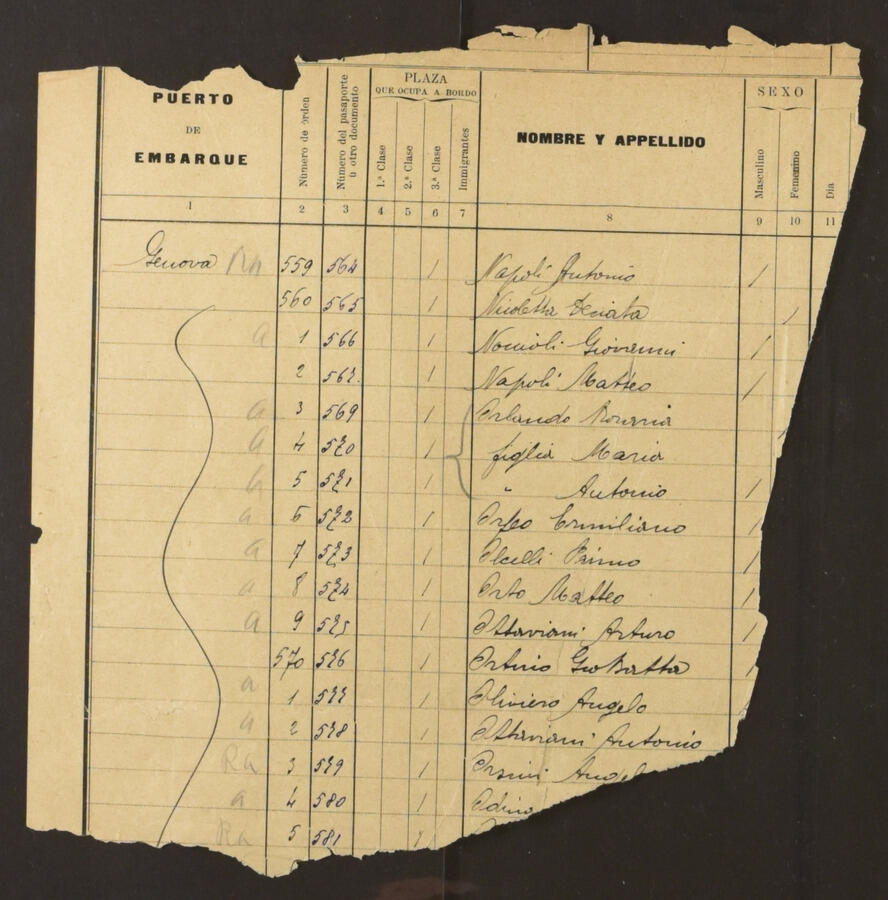 PUERTO DE EMBARQUE
Número de orden
Número del pasaporte u otro documento
PLAZA
QUE OCUPA A BORDO
1.ª Clase
2.ª Clase
3.ª Clase
Immigrantes
NOMBRE Y APPELLIDO
SEXO
Masculino
Femenino
Dia
1 2 3 4 5 6 7 8 9 10 11
Genova Ra 559 564 / Napoli Antonio /
560 565 / Nicoletta /
a 1 566 / Giovanni /
2 567. / Napoli Matteo /
a 3 569 / Orlando
a 4 570 / figlia Maria
a 5 571 / " Antonio /
a 6 572 / Emiliano /
a 7 573 / Primo /
a 8 574 / Orto Matteo /
a 9 575 / Ottaviani Arturo /
570 576 / Gio Batta /
a 1 577 / Oliviero Angelo
a 2 578 / Ottaviani Antonio
Ra 3 579 / Orsini
a 4 580 /
Ra 5 581 /